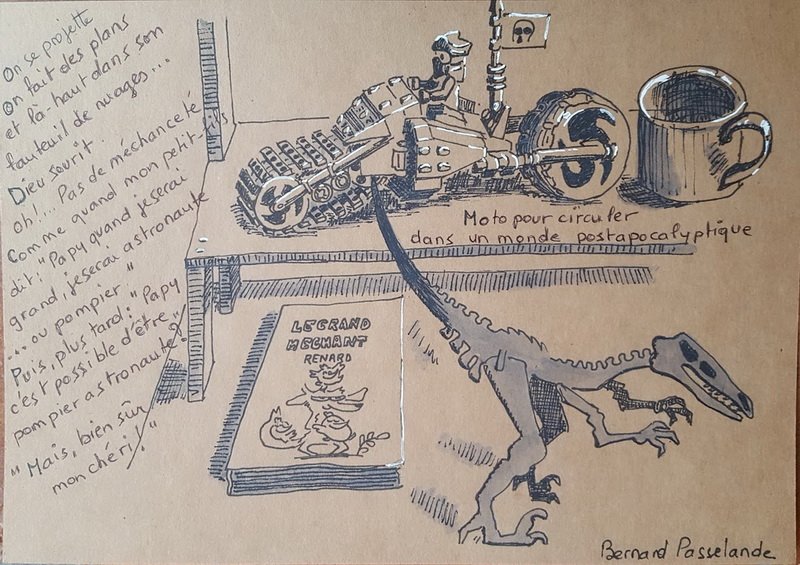 On se projette
On fait des plans
et là-haut dans son
fauteuil de nuages...
Dieu sourit.
Oh!... Pas de méchanceté
Comme quand mon petit-fils
dit: "Papy quand je serai
grand, je serai astronaute
...ou pompier"
Puis, plus tard: "Papy
c'est possible d'être
pompier astronaute?"
"Mais, bien sûr
mon chéri!"
Moto pour circuler
dans un monde postapocalyptique
LE GRAND
MECHANT
RENARD
Bernard Passelande